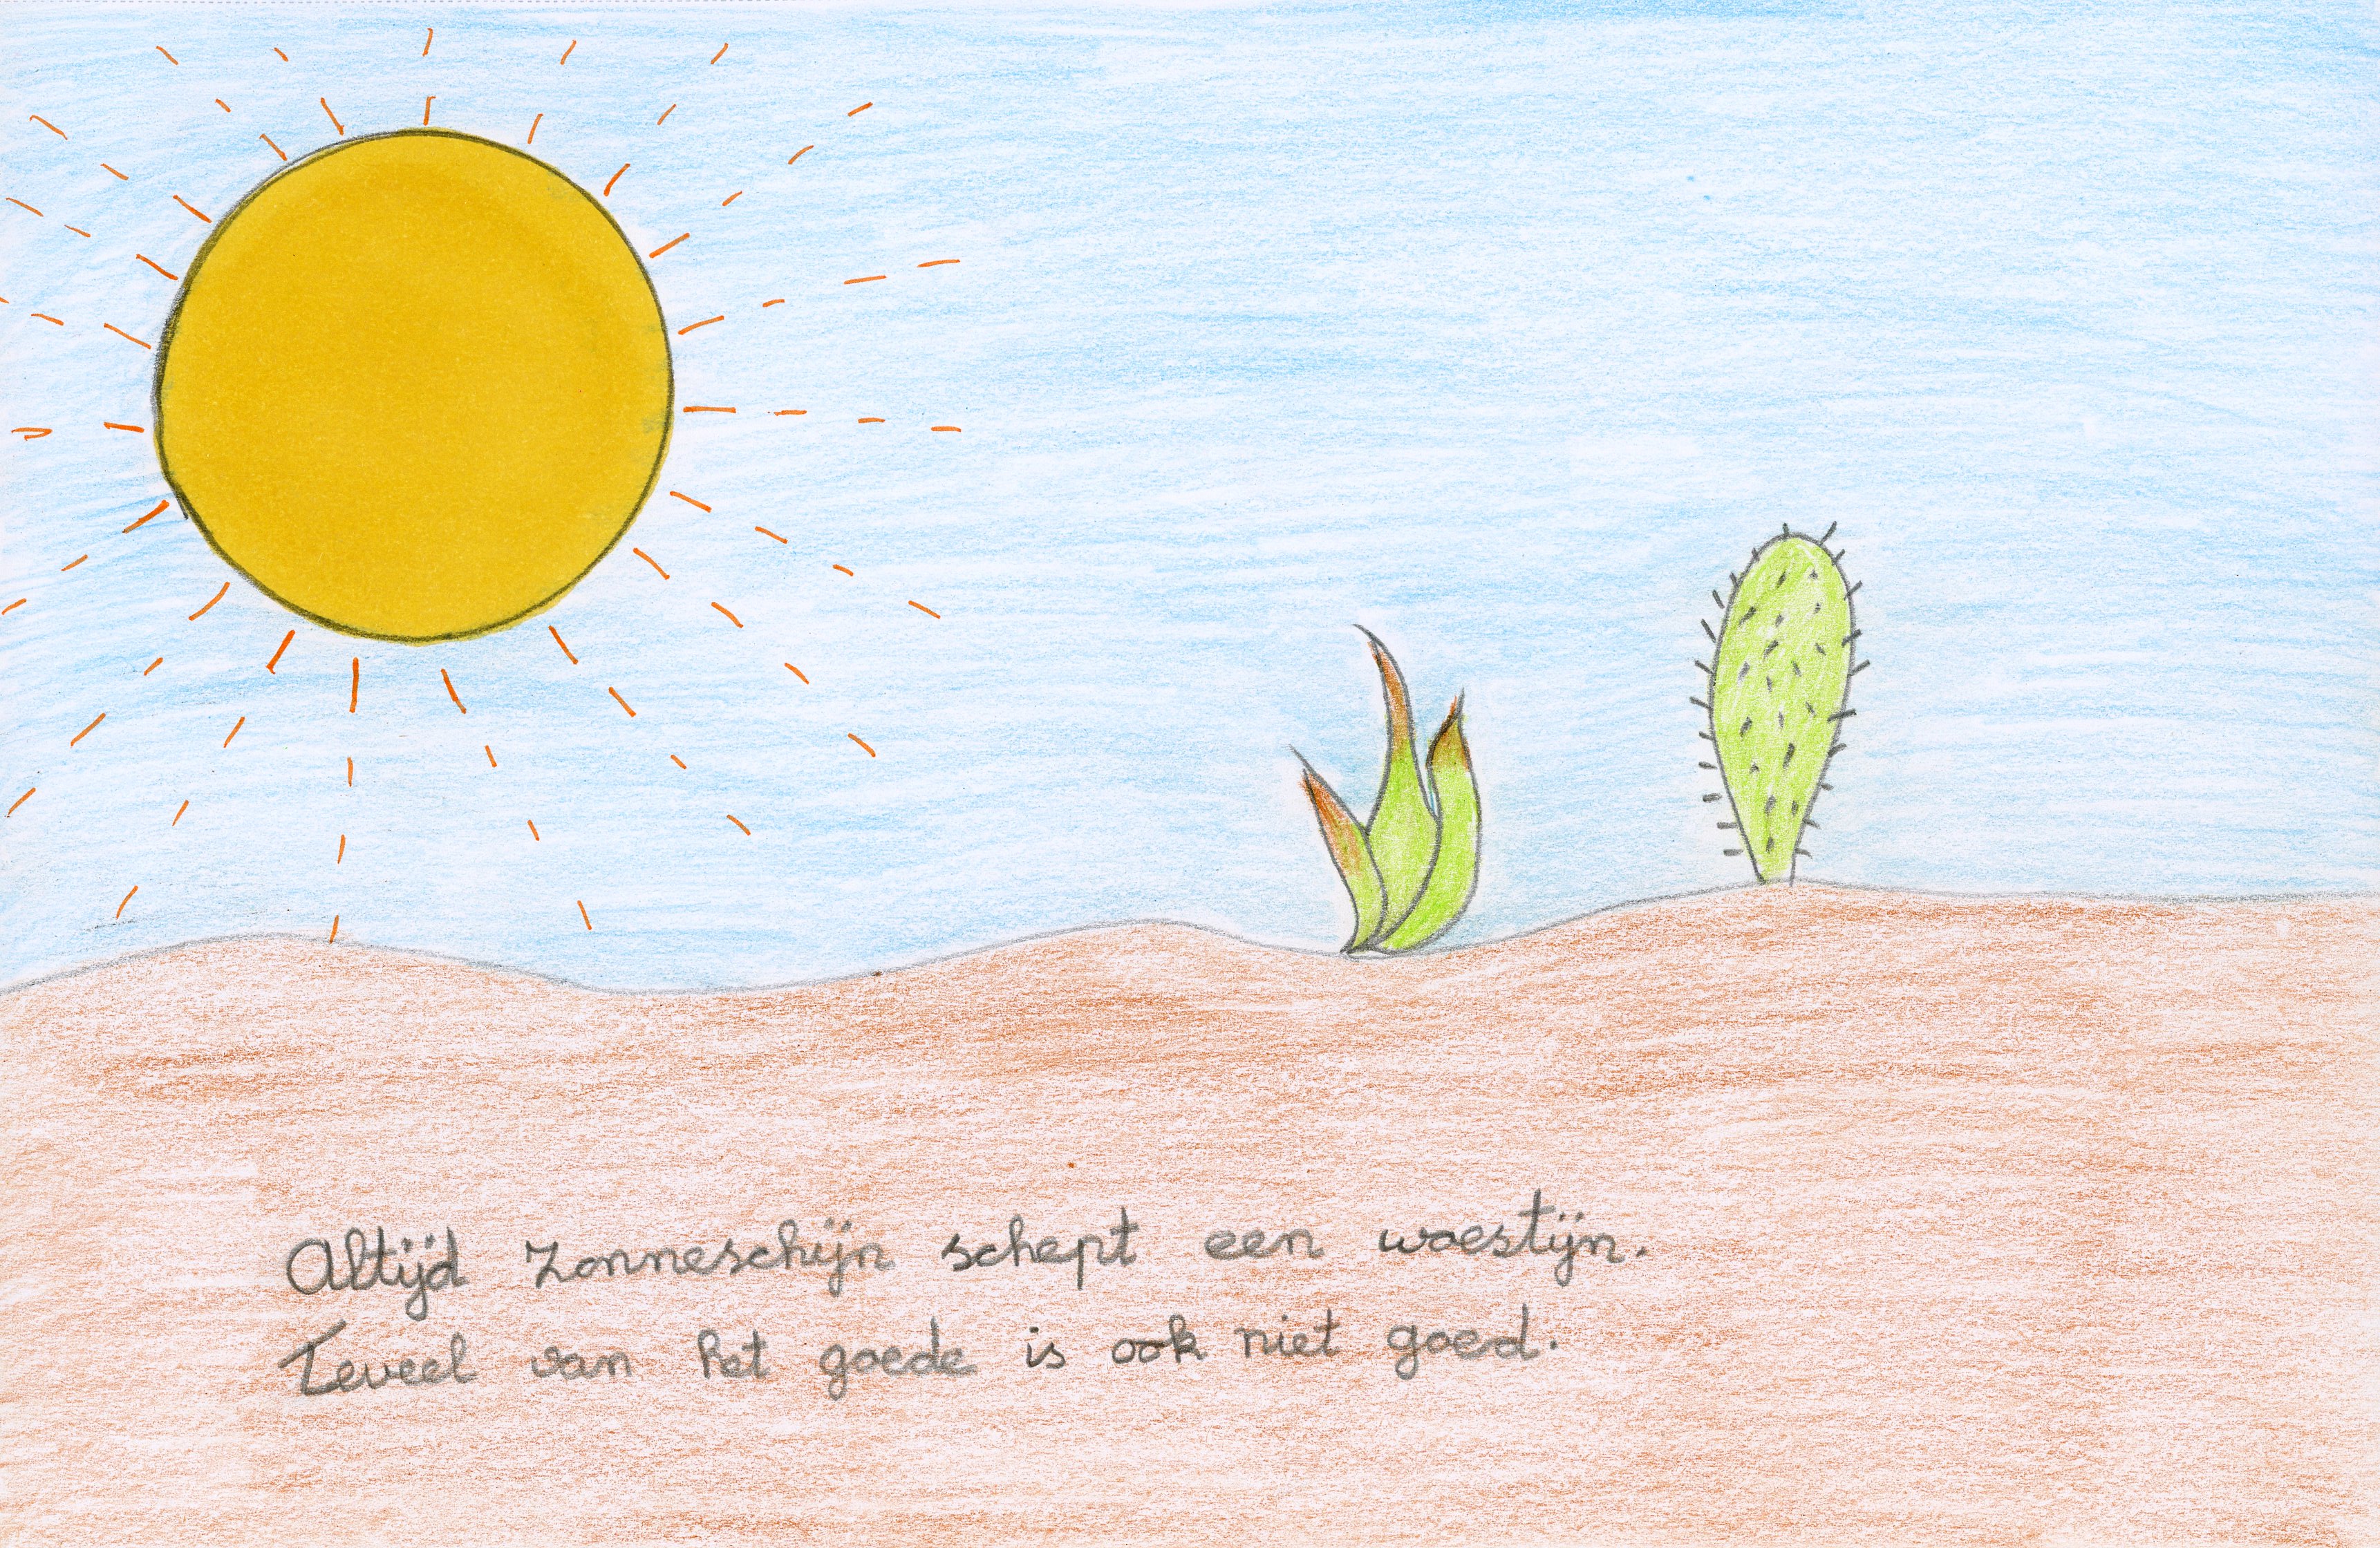 Altijd zonneschijn schept een woestijn.
Teveel van het goede is ook niet goed.